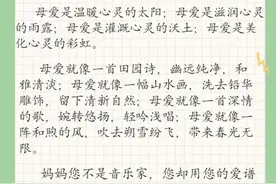 母爱是温暖心灵的太阳；母爱是滋润心灵
的雨露；母爱是灌溉心灵的沃土；母爱是美
化心灵的彩虹。
母爱就像一首田园诗，幽远纯净，和
雅清淡；母爱就像一幅山水画，洗去铅华
雕饰，留下清新自然；母爱就像一首深情
的歌，婉转悠扬，轻吟浅唱；母爱就像一
阵和煦的风，吹去朔雪纷飞，带来春光无
限。
妈妈您不是音乐家，您却用您的爱谱